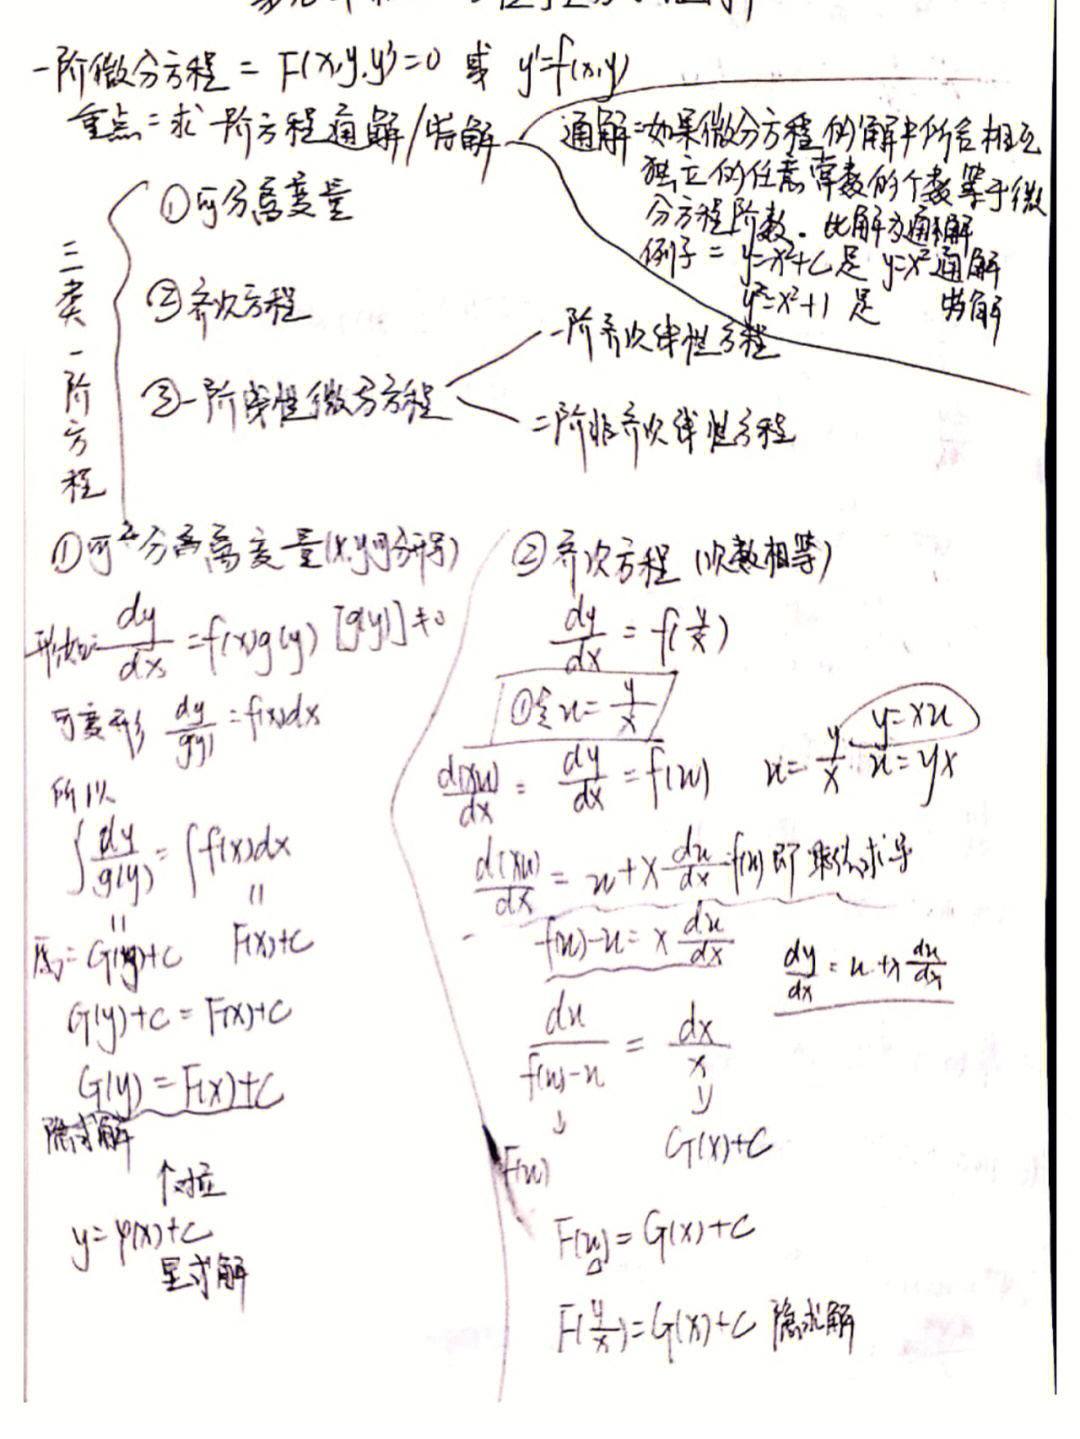 一阶微分方程 = F(x,y,y')=0 或 y'=f(x,y)
重点=求一阶方程通解/特解
通解=如果微分方程的解中所含相互
独立的任意常数的个数等于微
分方程阶数.此解为通解
例子= y=x²+C是 y=x²通解
y²=x²+1 是 特解
三类一阶方程
①可分离变量
②齐次方程
③一阶线性微分方程
一阶齐次线性方程
二阶非齐次线性方程
①可分离变量(x,y可分开写)
形如: dy/dx = f(x)g(y) [g(y)]≠0
可变形 dy/g(y) = f(x)dx
所以
∫dy/g(y) = ∫f(x)dx
= G(y)+C F(x)+C
G(y)+C = F(x)+C
G(y) = F(x)+C
隐式解
↑对应
y=φ(x)+C
显式解
②齐次方程 (次数相等)
dy/dx = f(y/x)
①令u= y/x
d(xu)/dx = dy/dx = f(u)
y=xu
u= y/x u=yx
d(xu)/dx = u+x du/dx f(u) 即 乘法求导
f(u)-u= x du/dx
dy/dx = u+x du/dx
du/(f(u)-u) = dx/x
F(u)
G(x)+C
F(u)=G(x)+C
F(y/x)=G(x)+C 隐式解